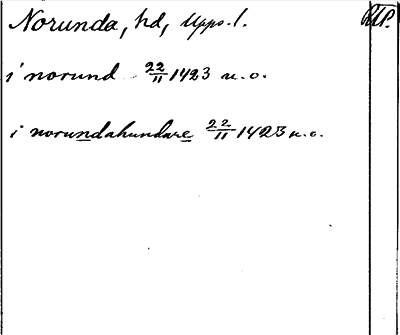 Norunda, hd, Upps. l.
RAP.
i norund 22/11 1423 u. o.
i norundahundare 22/11 1423 u. o.